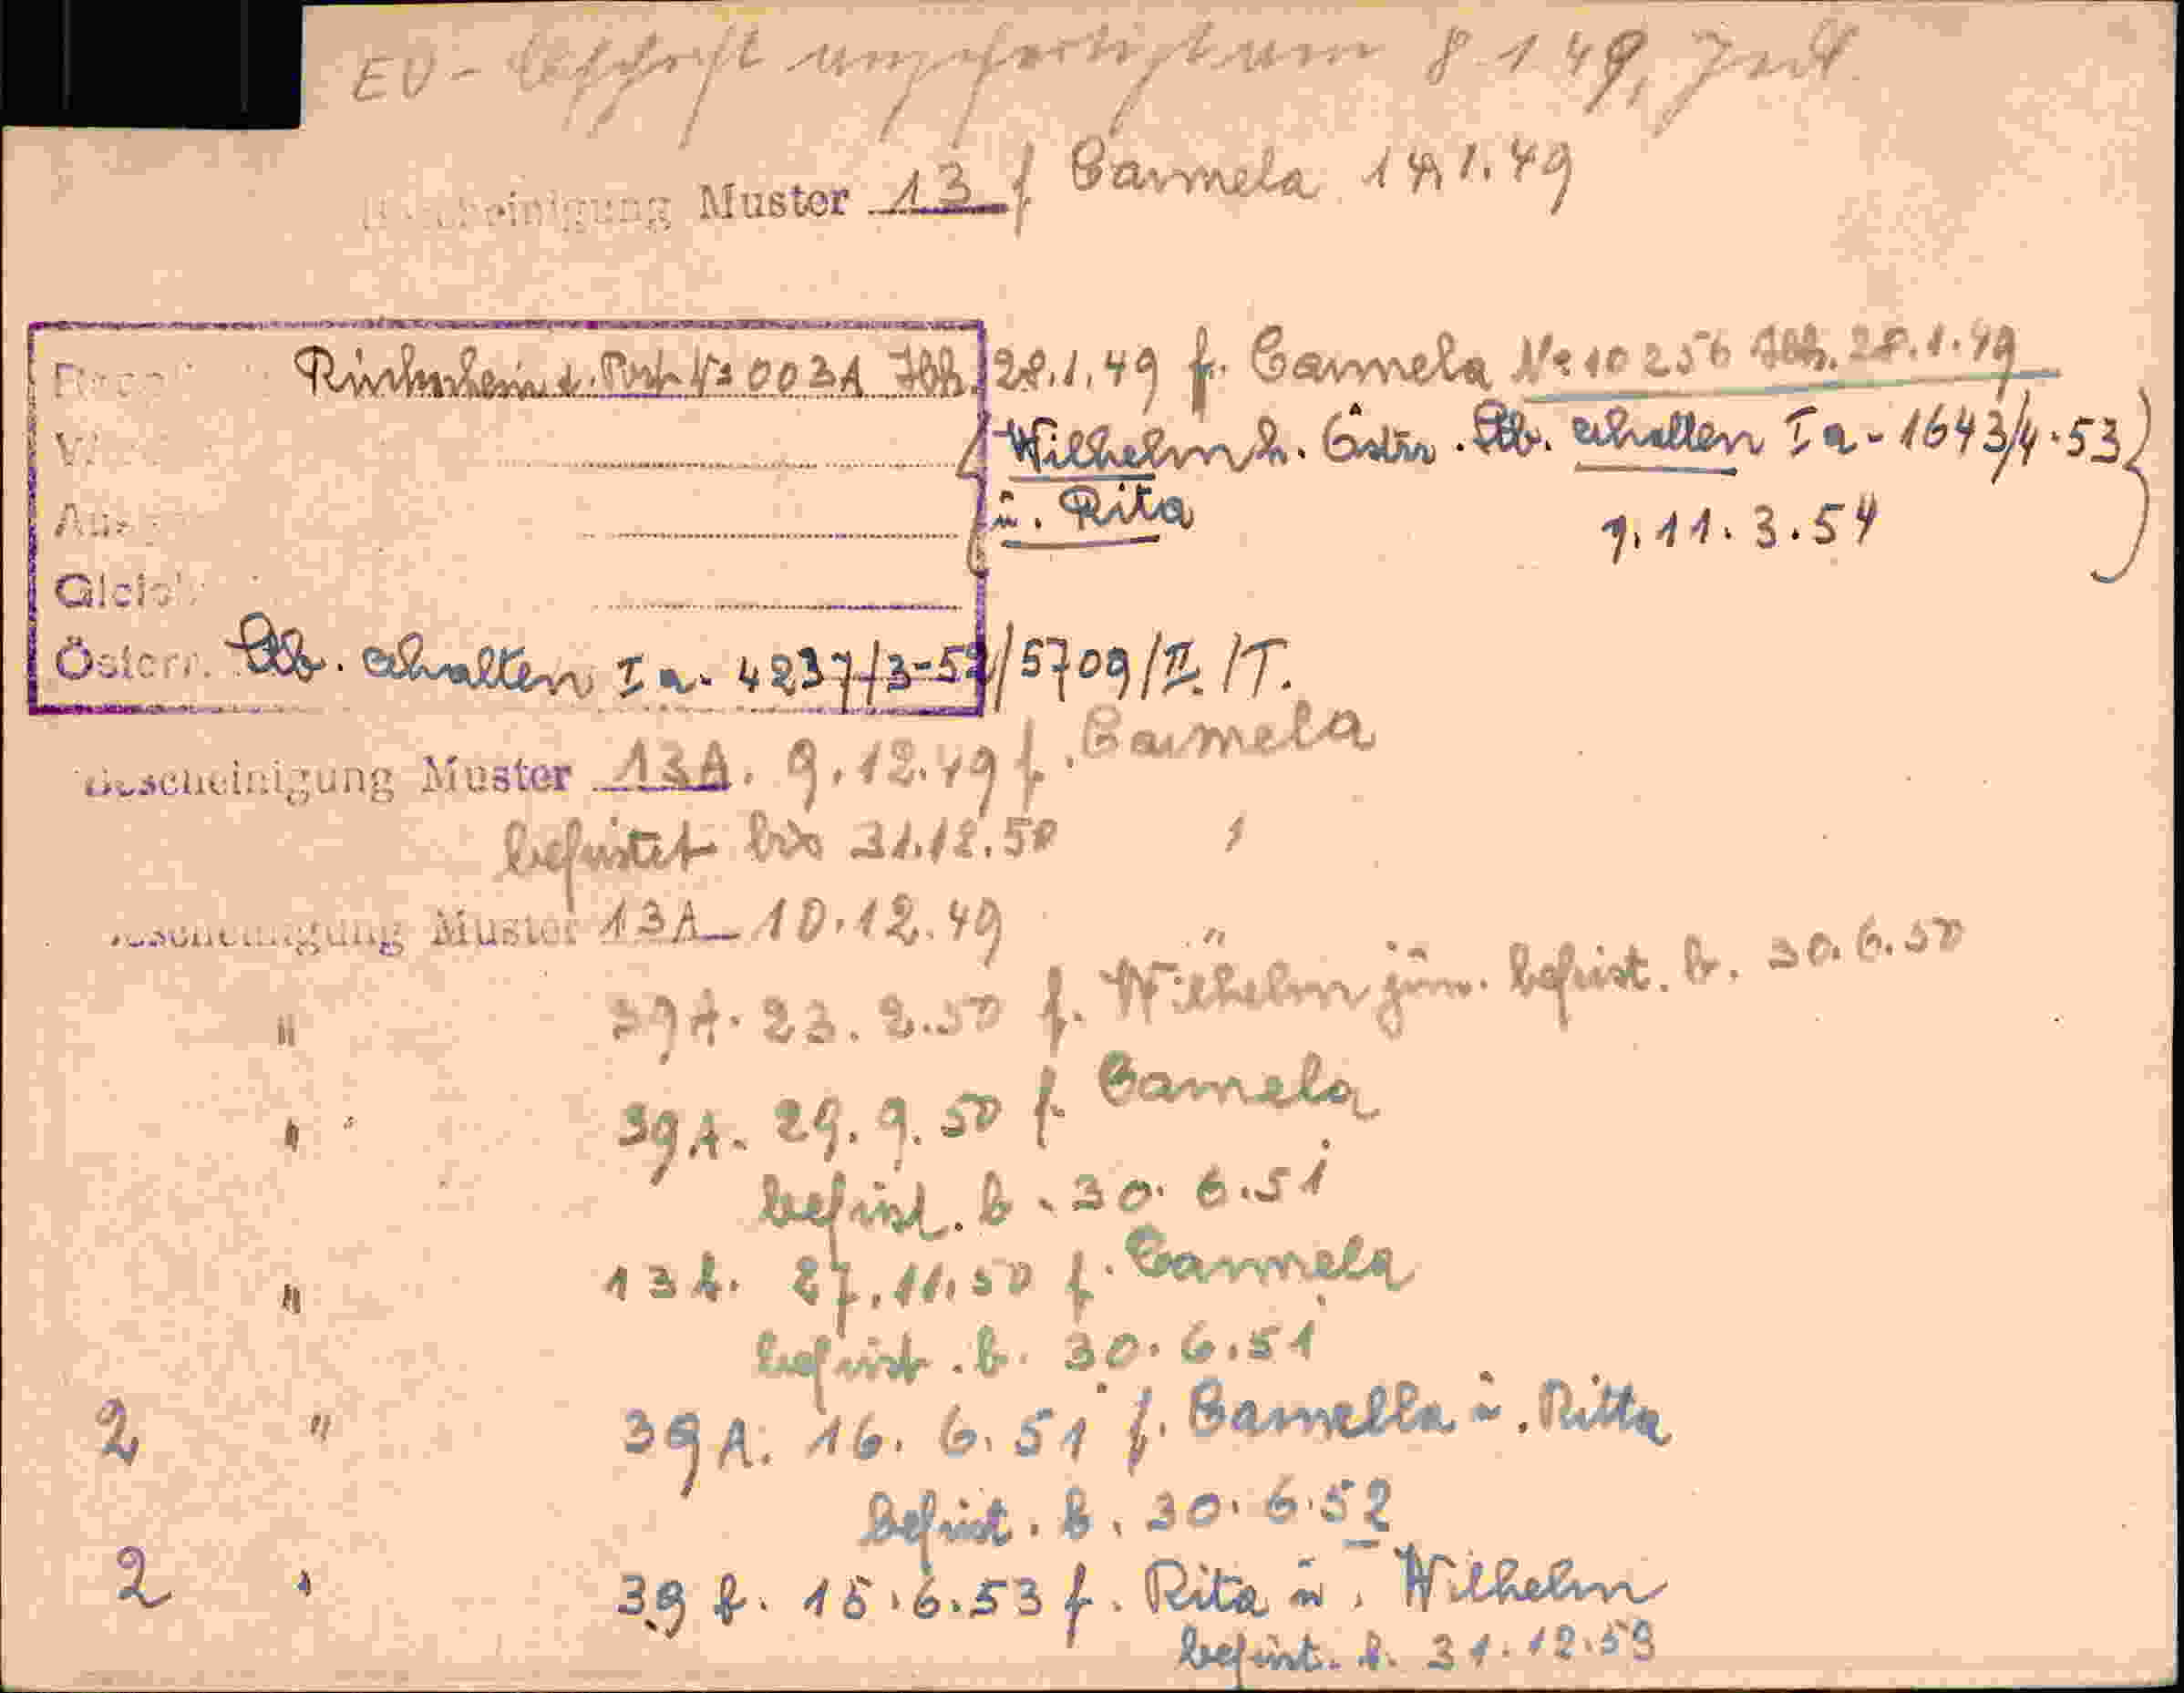 EU - 8.1.49,
Bescheinigung Muster 13 f Carmela 14.1.49
No 003A Ibk. 28.1.49 f. Carmela No 10256 Ibk. 28.1.49
Wilhelm h. Östr. Stb. erhalten Ia - 1643/4.53
u. Rita 11.3.54
Gleich
Österr. Stb. erhalten Ia - 4237/3-52/5709/II./T.
Bescheinigung Muster 13A. 9.12.49 f. Carmela
befristet bis 31.12.50
Bescheinigung Muster 13A 10.12.49
" 39A. 23.2.50 f. Wilhelm jun. befrist. b. 30.6.50
" 39A. 29.9.50 f. Carmela
befrist. b. 30.6.51
" 27.11.50 f. Carmela
befrist. b. 30.6.51
2 " 39A. 16.6.51 f. Carmella u. Ritta
befrist. b. 30.6.52
2 " 39 15.6.53 f. Rita u. Wilhelm
befrist. b. 31.12.53